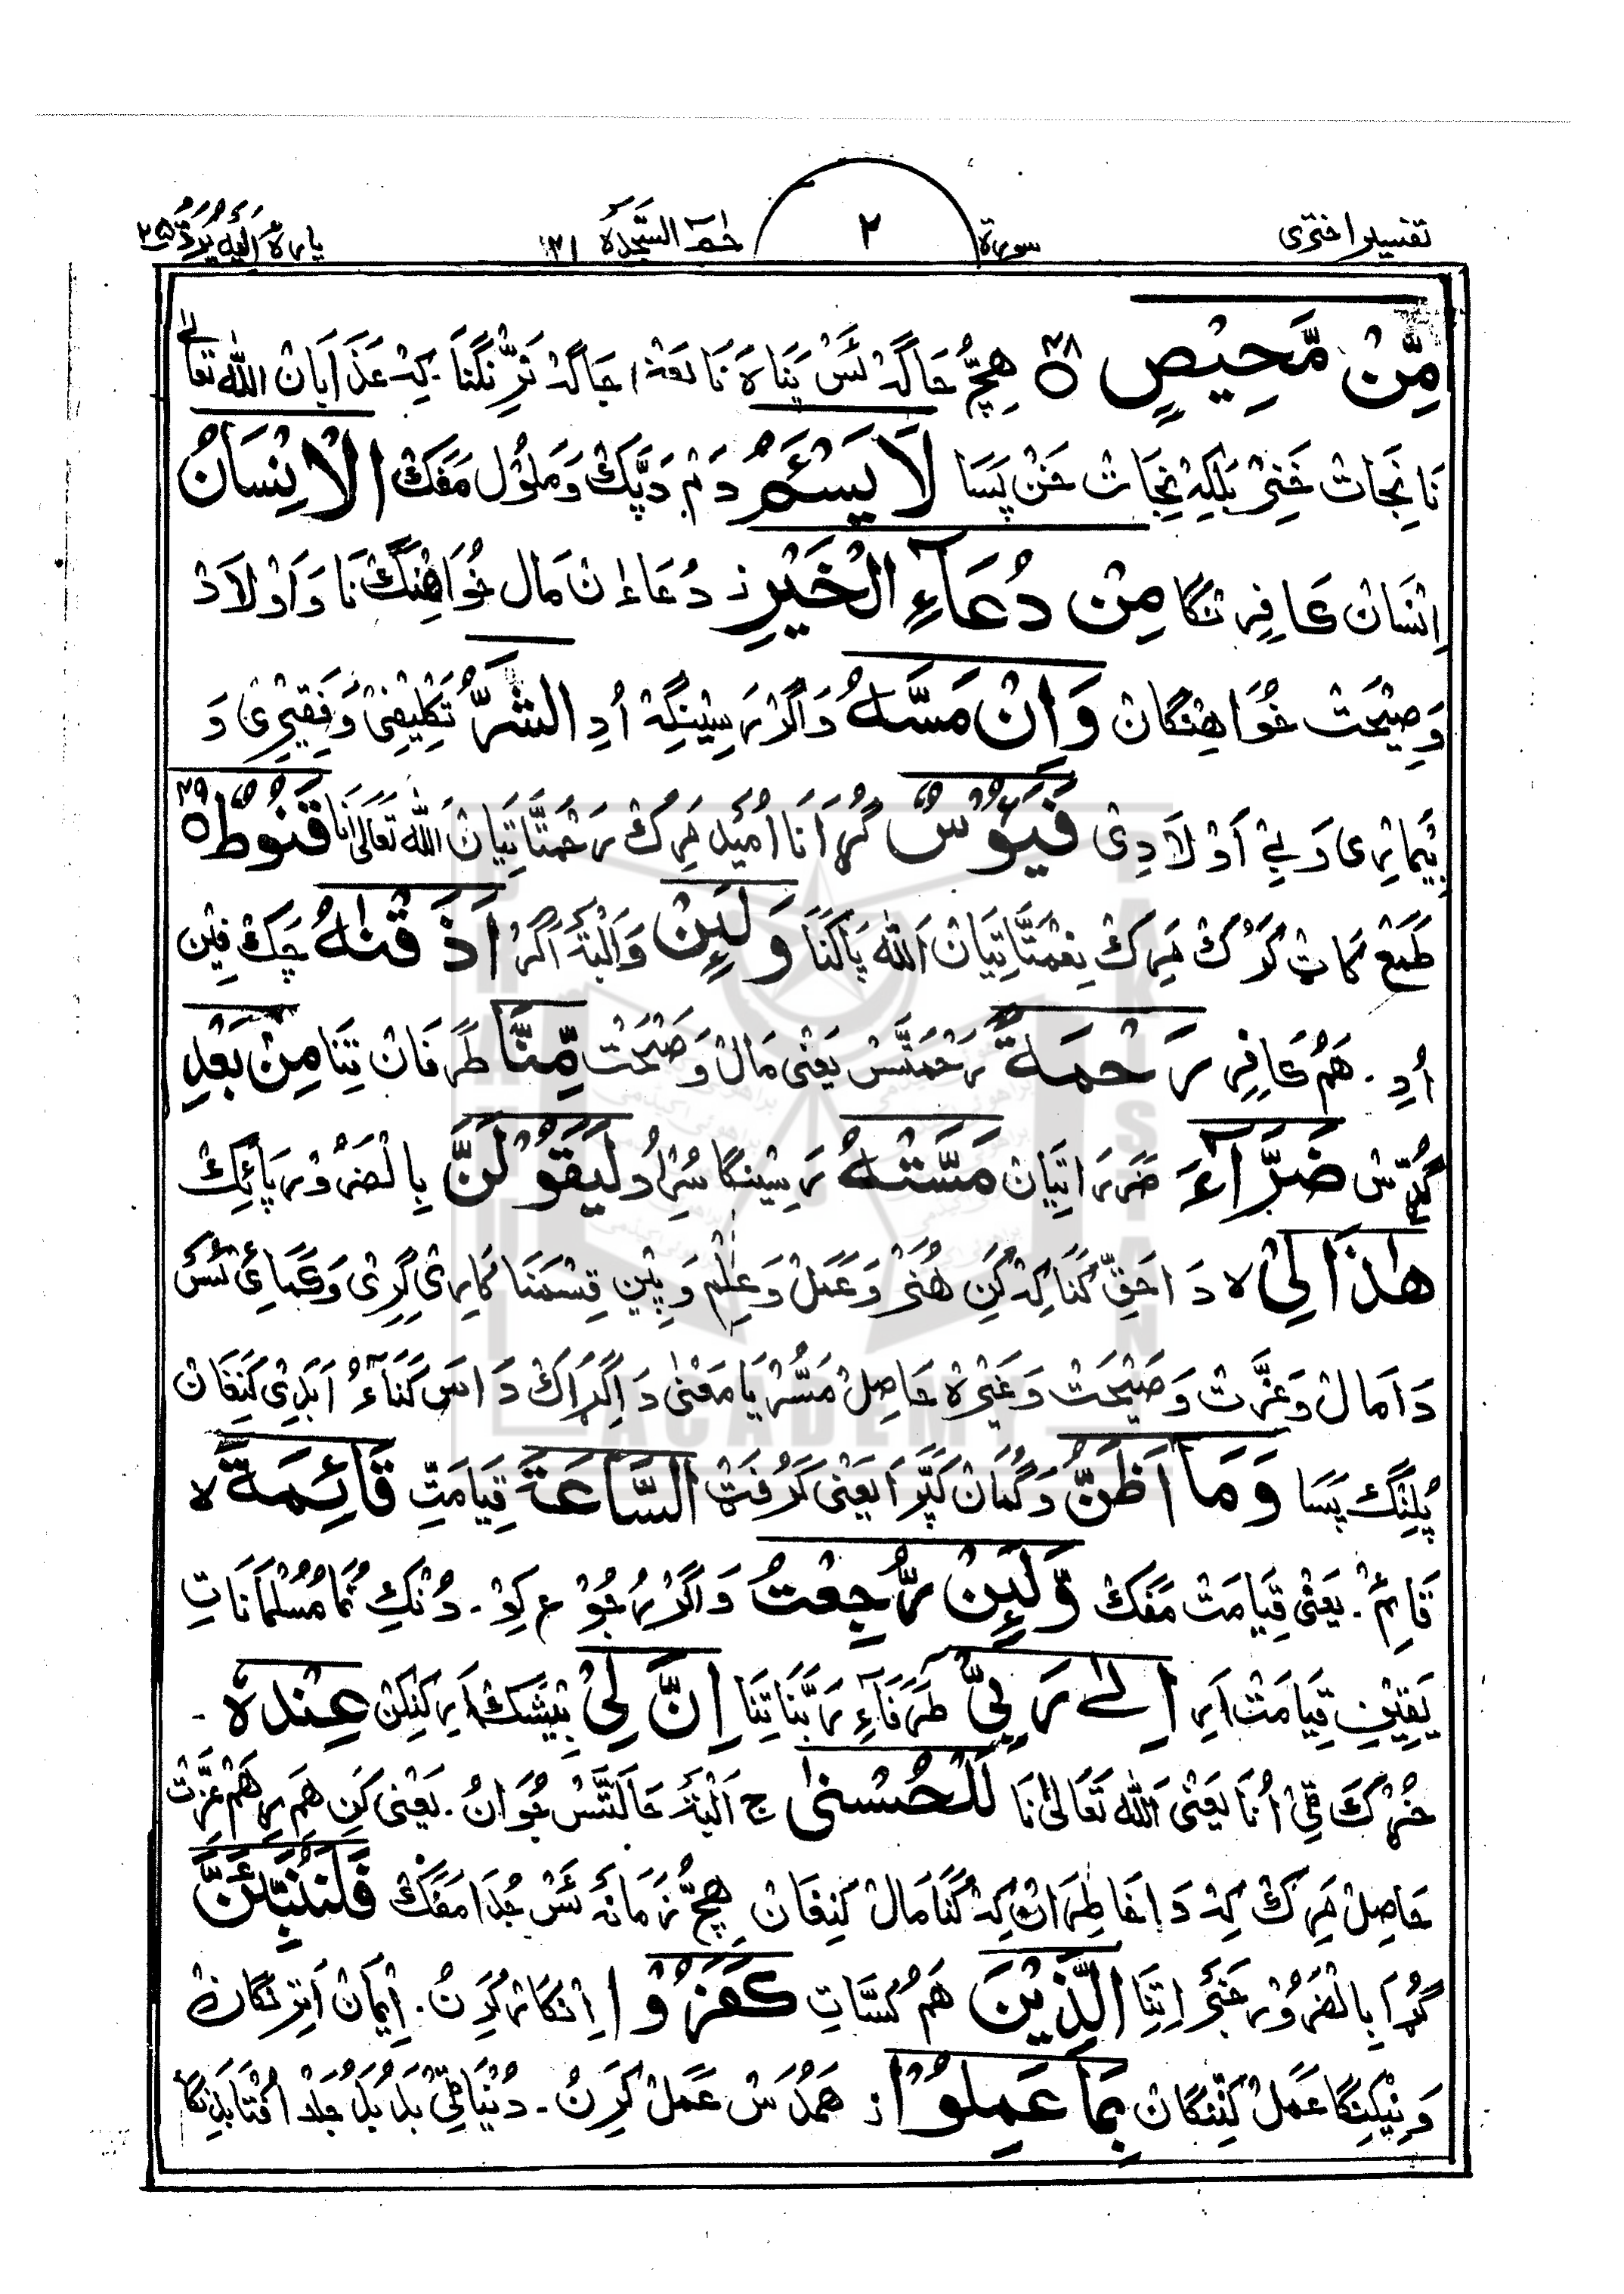 تفسیر اختری سورة ٢ حٰمٓ السّجدة ٤١ پارہ اِلَیْهِ یُرَدُّ ٢۵
مِّنْ مَّحِیْصٍ ۝٤٨ هِچّ جَاگہ ئَسْ پَنَاہ نَا
نَا نِجَاتْ خَنِرْ بَلکِہ نِجَاتْ خَنُن پَسَا لَا یَسْـَٔمُ دَمْ دَپَّكْ وَمَلُوْل مَفَكْ الْاِنْسَانُ
اِنْسَانْ کَافِر نْگَا مِنْ دُعَآءِ الْخَیْرِ ز دُعَاءِ اٰن مَال خُوَاهِنْگ نَا وَ اَوْلَادْ
وَصِحَتْ خُوَاهِنْگَانْ وَاِنْ مَسَّهُ وَ اَگَرْ رَسِیْنگِہ اُدِ الشَّرُّ تَکْلِیْفِیْ وَ فَقِیْرِیْ وَ
بِیْمَارِی وَ بِیْ اَوْلَادِیْ فَیَـُٔوْسٌ گُڑَا نَا اُمَیْد مَرِكْ رَحْمَتَّا تِیَانْ اَللّٰه تَعَالٰی نَا قَنُوْطٌ ۝٤٩
طَمَعْ کَرُكْ مَرِكْ نِعْمَتَّا تِیَانْ اَللّٰه پَاكْنَا وَ لَئِنْ وَ اَلْبَتَّہ اَگَرْ اَذَقْنٰهُ چَکْفِیْن
اُدِ. هَمُ کَافِرِ رَحْمَةً رَحْمَتَّسْ یَعْنِی مَالْ وَ صِحَتْ مِّنَّا طَرَفَانْ تِنَا مِنْ بَعْدِ
گُدّسْ ضَرَّآءَ ضَرَرَ اتِیَانْ مَسَّتْهُ رَسِیْنگَا لَیَقُوْلَنَّ بِالْضَرُوْر پَائِكْ
هٰذَا لِیْ لا دَا حَقِّ کَنَا کِہ کَنِ هُنَرْ وَ عَمَلْ وَ عِلْم وَ پِیْن قِسْمَنَا کَارِیْ گَرِیْ وَ
دَا مَالْ وَ عِزَّتْ وَ صِیْحَتْ وَ غَیْرَہ حَاصِلْ مَسُّرْ یَا مَعْنٰی دَا گِڑَاكْ دَاسَ کَنَا ءُ اَبَدِیْ کَنِفَانْ
پُلِنْگ پَسَا وَمَا اَظُنُّ وَ گُمَانْ کَپَّرَ یَعْنِی کَرُفَتْ السَّاعَةَ قِیَامَتِ قَآئِمَةً لا
قَائِمْ. یَعْنِی قِیَامَتْ مَفَكْ وَّ لَئِنْ رُّجِعْتُ وَ اَگَرْ رُجُوْع کِوْ۔ دُنْکِ نُمَا مُسْلُمَانَاتِ
یَقِیْن قِیَامَتْ اَرِ اِلٰی رَبِّیْ طَرَفَآءِ رَبَّنَا تِنَا اِنَّ لِیْ بِیْشَكْ اَرِ کَنِکَنْ عِنْدَہٗ۔
خُڑكَ ٹِیْ اُنَا یَعْنِی اَللّٰه تَعَالٰی نَا لَلْحُسْنٰی ج اَلْبَتَّہ حَالَتَّسْ جُوَانُ. یَعْنِی کَنِ هَمِ رِ هَمْ عِزَّتْ
حَاصِلْ مَرِكْ کِہ دَا خَاطِرَ انْ کِہ کَنَا مَالْ کَنِفَانْ هِچّ زَمَانَہ ئَسْ جُدَا مَفَكْ فَلَنُنَبِّئَنَّ
گُڑَا بِالْضَرُوْر خَبَرَ اِتِنَا الَّذِیْنَ هَمُ کَسَّاتِ کَفَرُوْا اِنْکَارْ کَرِنُ. اِیْمَانْ
وَ نِیْکِنْگَا عَمَلْ کَنِّنْگَانْ بِمَا عَمِلُوْا ز هَمُدُسْ عَمَلْ کَرِنُ۔ دُنْیَا ٹِیْ